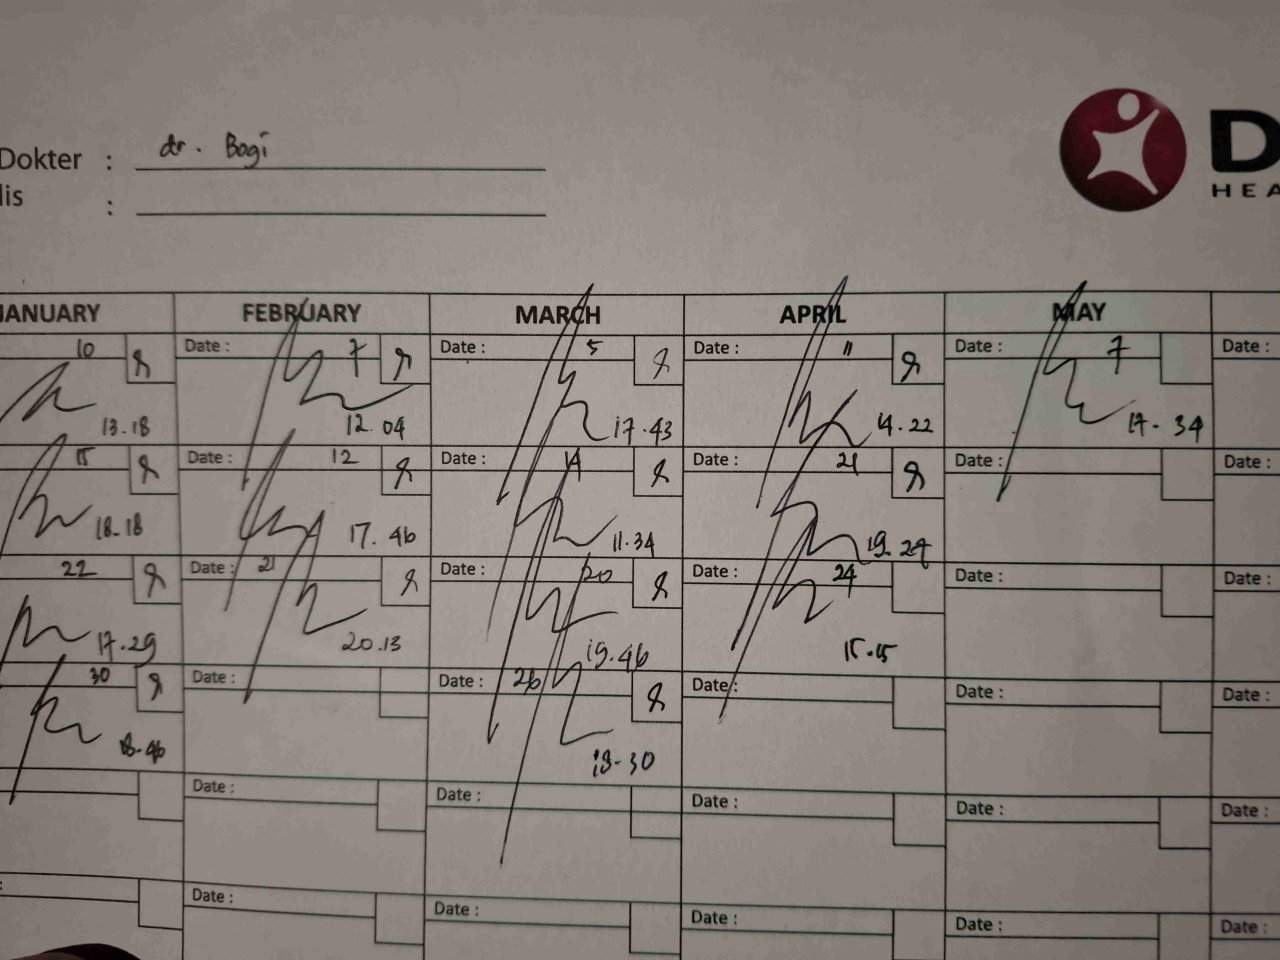 Dokter : dr. Bagi
lis :
D
HEA
JANUARY FEBRUARY MARCH APRIL MAY
10 Date : 7 Date : 5 Date : 11 Date : 7 Date :
13.18 12.04 17.43 14.22 17.34
15 Date : 12 Date : 14 Date : 21 Date : Date :
18.18 17.46 11.34 19.24
22 Date : 21 Date : 20 Date : 24 Date : Date :
17.29 20.13 19.46
30 Date : Date : 26 Date : Date : Date :
18.46 18.30
Date : Date : Date : Date : Date :
: Date : Date : Date : Date : Date :